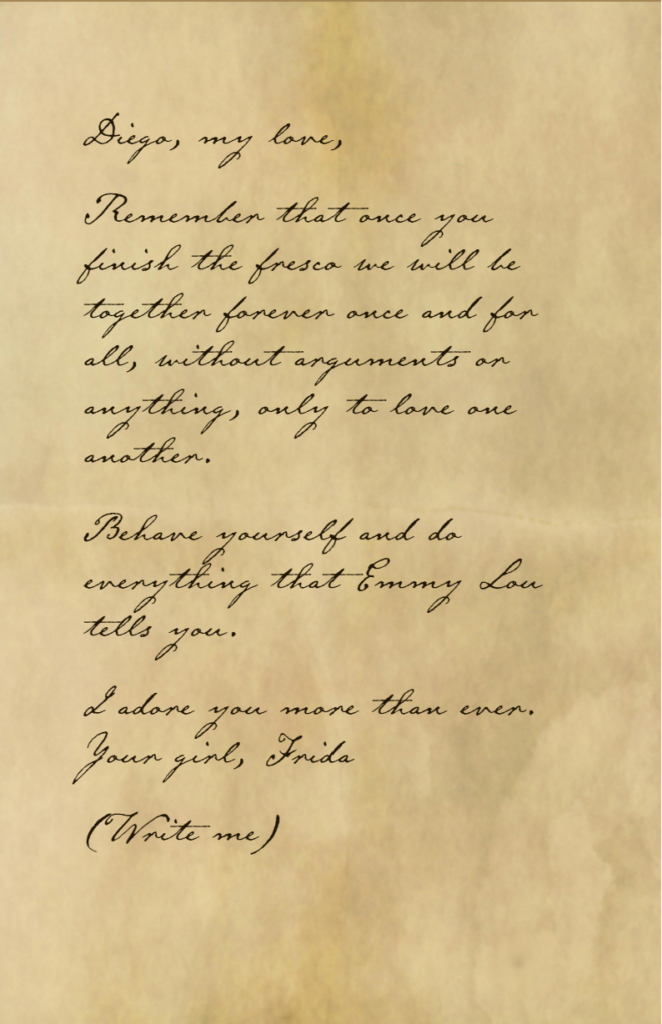 Diego, my love,
Remember that once you
finish the fresco we will be
together forever once and for
all, without arguments or
anything, only to love one
another.
Behave yourself and do
everything that Emmy Lou
tells you.
I adore you more than ever.
Your girl, Frida
(Write me)